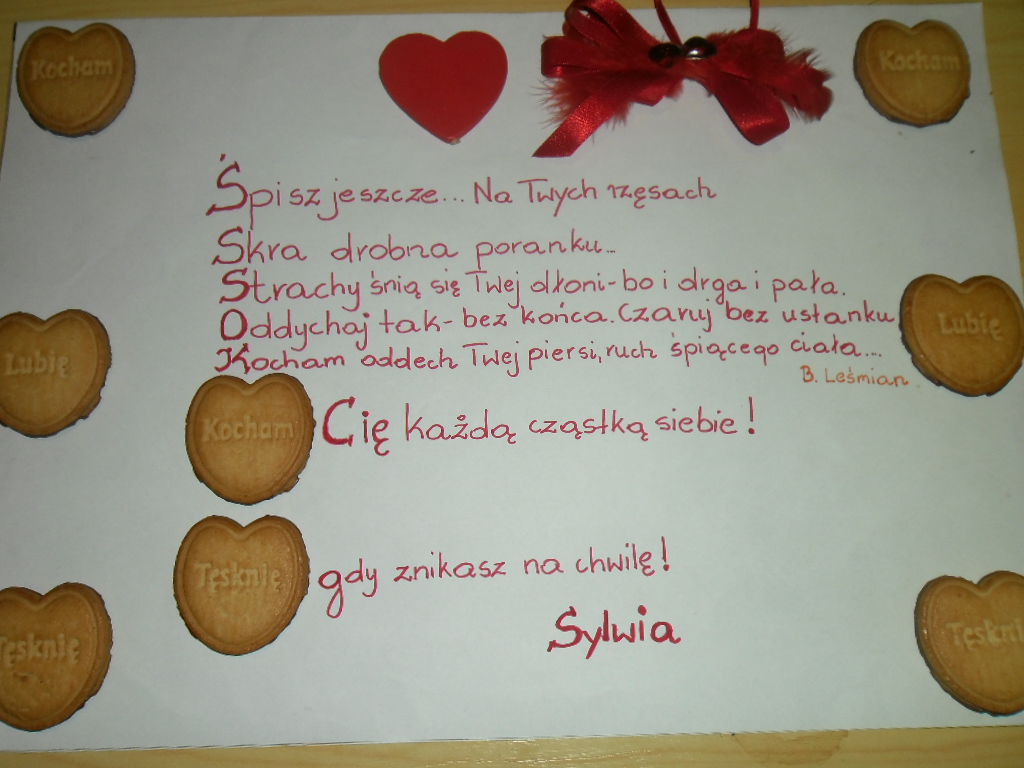 Kocham
Kocham
Śpisz jeszcze... Na Twych rzęsach
Skra drobna poranku...
Strachy śnią się Twej dłoni-bo i drga i pała.
Oddychaj tak-bez końca. Czaruj bez ustanku
Kocham oddech Twej piersi, ruch śpiącego ciała...
B. Leśmian
Lubię
Lubię
Kocham Cię każdą cząstką siebie!
Tęsknię gdy znikasz na chwilę!
Sylwia
Tęsknię
Tęskni